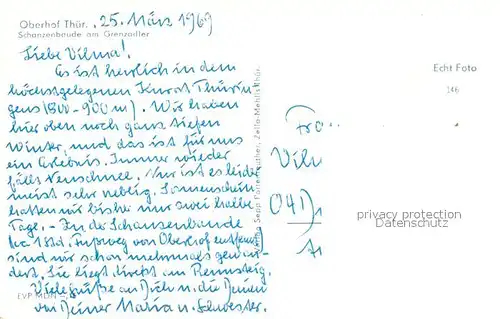 Oberhof Thür. 25. März 1969
Schanzenbaude am Grenzadler
Liebe Vilma!
Es ist herrlich in dem
höchstgelegenen Kurort Thürin
gens (800-900 m). Wir haben
hier oben noch ganz tiefen
Winter, und das ist für uns
ein Erlebnis. Immer wieder
fällt Neuschnee. Nur ist es leider
meist sehr neblig. Sonnenschein
hatten wir bisher nur zwei halbe
Tage. - In der Schanzenbaude
(ca 1 Std. Fußweg von Oberhof entfernt)
sind wir schon mehrmals gewan-
dert. Sie liegt direkt am Rennsteig.
Viele Grüße an Dich u. die Deinen
von Deiner Maria u. Schwester.
EVP MDN
Verlag Sepp Zella-Mehlis/Thür.
Echt Foto
146
Fra
Vilm
(041)
privacy protection
Datenschutz